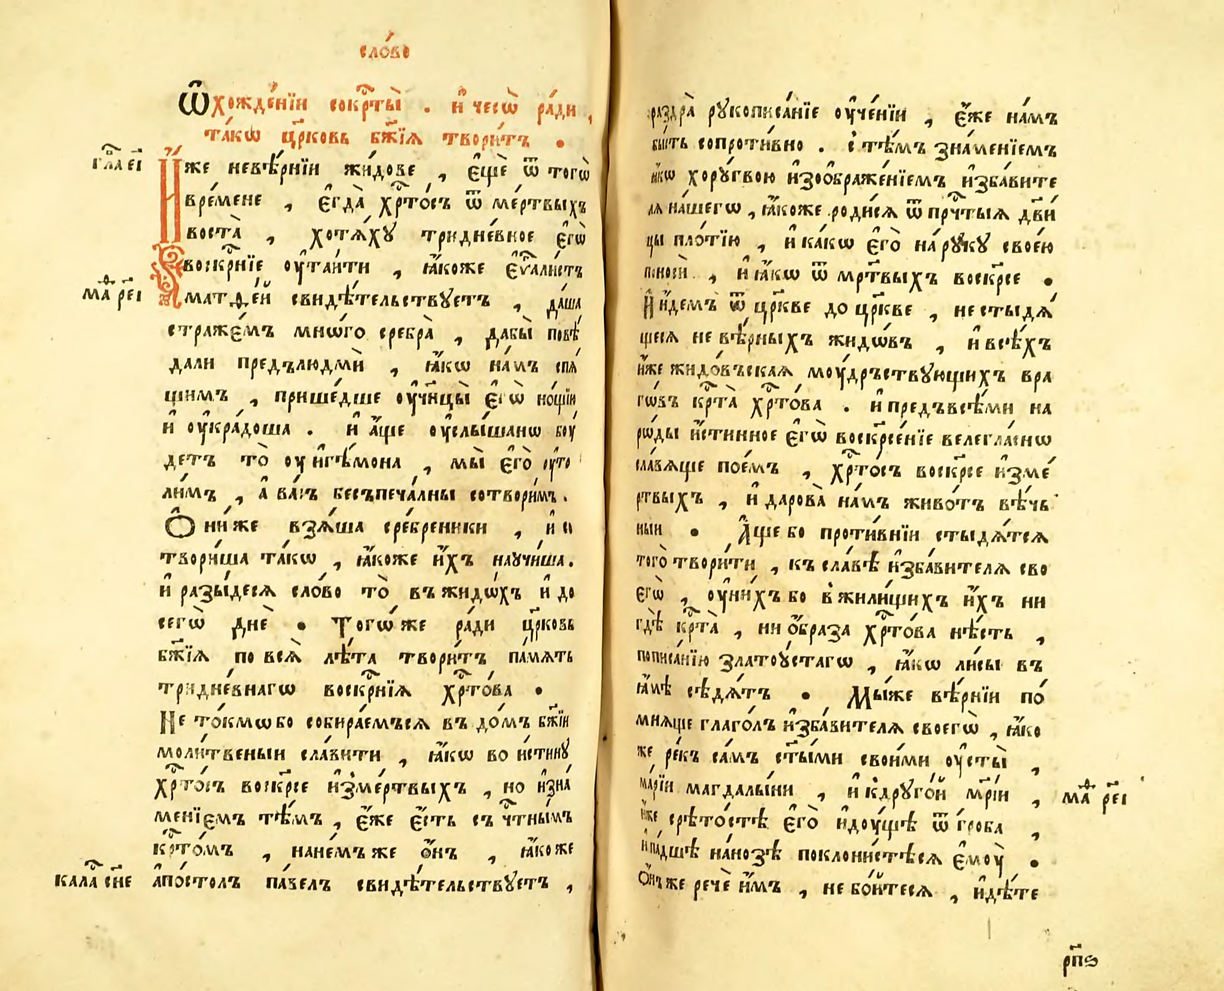 сло́во
Ѡ҆хожде́нїи сокр҇ты̀ . и҆ чесѡ̀ ра́ди ,
та́кѡ цр҃ковь бж҃їѧ твори́тъ .
гла еі
И҆́же невѣ́рнїи жи́дове , є҆щѐ ѿ тогѡ̀
вре́мене , є҆гда̀ хр҇то́съ ѿ ме́ртвыхъ
воста̀ , хотѧ́хꙋ тридне́вное є҆гѡ̀
воскр҇нїе оу҆таи́ти , ꙗ҆́коже є҆ѵⷢ҇али́стъ
ма́ реі
матѳе́й свидѣ́тельствꙋетъ , да́ша
стра́жемъ мно́гѡ сребра̀ , дабы̀ повѣ́
дали предълюдмѝ , ꙗ҆́кѡ на́мъ спѧ́
щимъ , прише́дше оу҆чн҃цы̀ є҆гѡ̀ но́щїи
и҆ оу҆кра́доша . и҆ а҆́ще оу҆слы́шанѡ боу́
детъ то̀ оу҆ игѣ́мона , мы̀ є҆го̀ оу҆то
ли́мъ , а҆ ва́съ бесъпеча́лны сотвори́мъ .
Ѻ҆ни́же взѧ́ша сре́бреники , и҆ со
твори́ша та́кѡ , ꙗ҆́коже и҆́хъ наꙋчи́ша .
и҆ разы́десѧ сло́во то̀ въ жидѡ́хъ и҆ до
сегѡ̀ днѐ . Тогѡ́же ра́ди цр҃ковь
бж҃їѧ по всѧ̀ лѣ́та твори́тъ па́мѧть
тридне́внагѡ воскр҇нїѧ хр҇то́ва .
Не то́кмѡ бо собира́емъсѧ въ до́мъ бж҃їи
моли́твеныи сла́вити , ꙗ҆́кѡ во и҆́стинꙋ
хр҇то́съ воскр҃се и҆зме́ртвыхъ , но и҆ зна́
менїемъ тѣ́мъ , є҆́же є҆́сть съ чт҇ны́мъ
кр҇то́мъ , на не́мъ же ѻ҆́нъ , ꙗ҆́коже
кала́ сне
а҆по́столъ па́велъ свидѣ́тельствꙋетъ ,
раздра̀ рꙋкописа́нїе оу҆че́нїи , є҆́же на́мъ
бы́ть сопроти́вно . с тѣ́мъ зна́менїемъ
ꙗ҆́кѡ хорꙋ́гвою и҆зоображе́нїемъ и҆зба́вите
лѧ на́шегѡ , ꙗ҆́коже роди́сѧ ѿ прч҇тыѧ дв҃и
цы пло́тїю , и҆ ка́кѡ є҆го̀ на рꙋкꙋ̀ свое́ю
поноси̑ , и҆ ꙗ҆́кѡ ѿ мр҃твыхъ воскр҃се .
И҆ и҆́демъ ѿ цр҃кве до цр҃кве , нестыдѧ́
щесѧ невѣ́рныхъ жидѡ́въ , и҆ всѣ́хъ
и҆́же жидо́въскаѧ моу́дръствꙋющихъ вра
гѡ́въ кр҇та̀ хр҇то́ва . и҆ предъвсѣ́ми на
рѡ́ды и҆́стинное є҆гѡ̀ воскр҃се́нїе велегла́снѡ
сла́вѧще пое́мъ , хр҇то́съ воскр҃се и҆зме́
ртвыхъ , и҆ дарова̀ на́мъ живо́тъ вѣ́ч
ныи . А҆́ще бо проти́внїи стыдѧ́тсѧ
того̀ твори́ти , къ сла́вѣ и҆зба́вителѧ сво
є҆гѡ̀ , оу҆ ни́хъ бо в жили́щихъ и҆́хъ ни
гдѣ̀ кр҇та̀ , ни ѻ҆́браза хр҇то́ва нѣ́сть ,
по писа́нїю златоꙋ́стагѡ , ꙗ҆́кѡ ли́сы въ
ꙗ҆́мѣ сѣдѧ́тъ . Мы́же вѣ́рнїи по́
мнѧще глаго́лъ и҆зба́вителѧ своегѡ̀ , ꙗ҆́ко
же ре́къ са́мъ ст҃ы́ми свои́ми оу҆сты̀ ,
мрі́и магдалы́ни , и҆ к дрꙋго́й мр҃і́и ,
ма́ реі
и҆́же срѣ́тостѣ є҆го̀ и҆дꙋ́щѣ ѿ гро́ба ,
и҆ па́дшѣ на́нозѣ поклони́стѣсѧ є҆моу̀ .
Ѻ҆́нъ же речѐ и҆́мъ , не бо́йтесѧ , и҆ди́те
рп҃ѕ